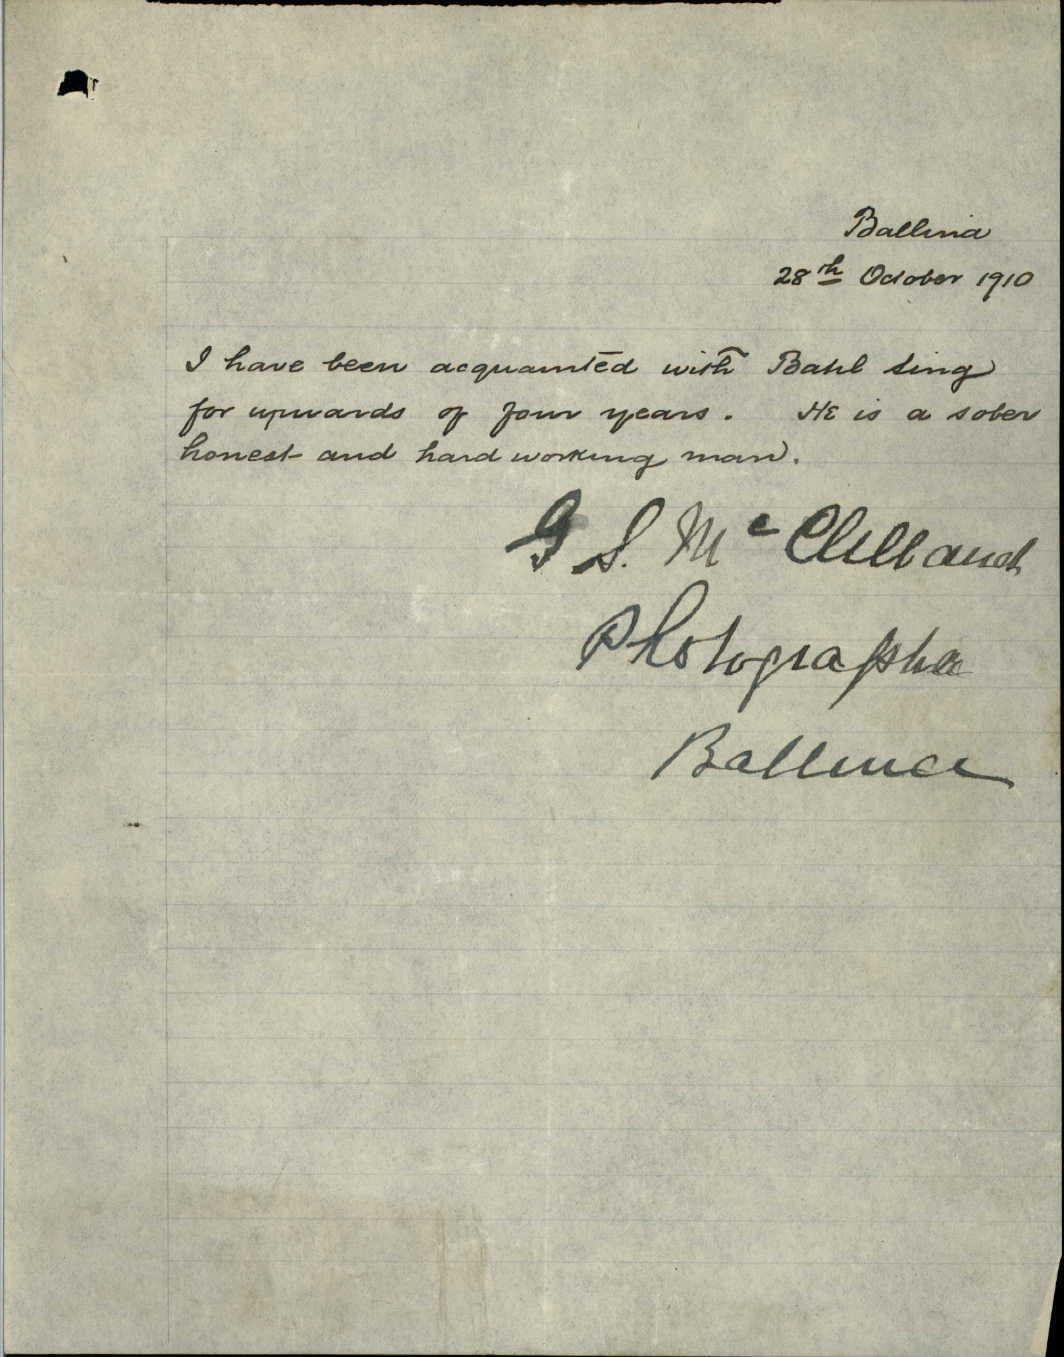 Ballina
28th October 1910
I have been acquainted with Bahl Sing
for upwards of four years. He is a sober
honest and hard working man.
G S. Mc Clelland
Photographer
Ballina